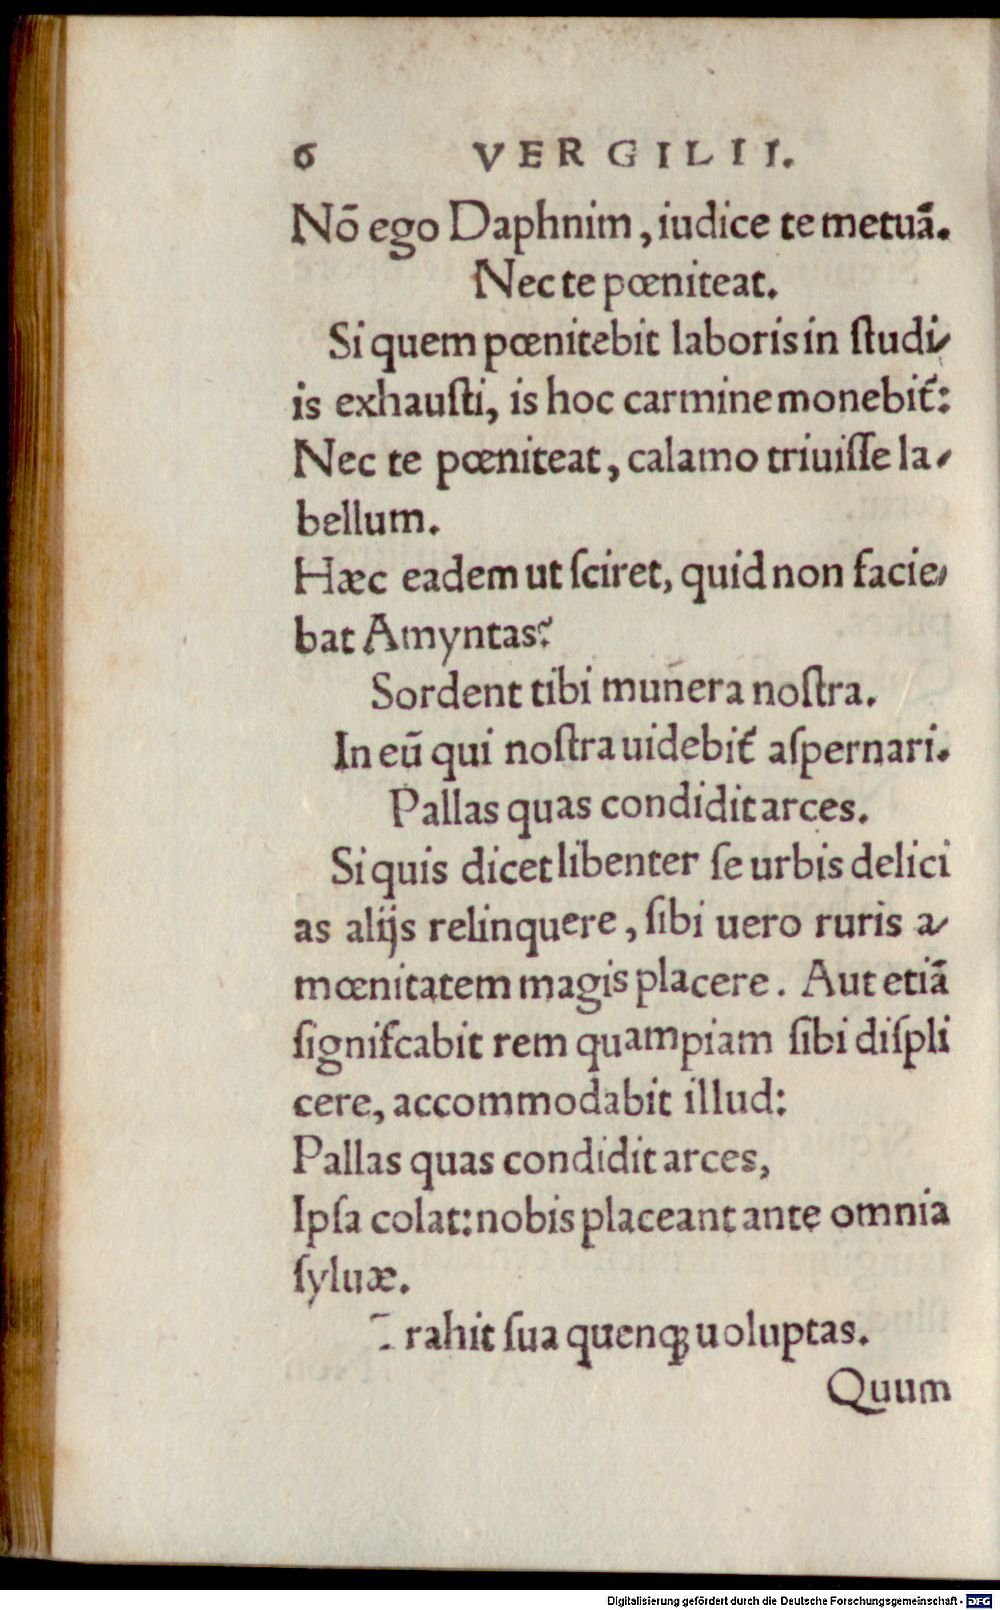 6 VERGILII.
Nō ego Daphnim, iudice te metuā.
Nec te pœniteat.
Si quem pœnitebit laboris in ſtudi-
is exhauſti, is hoc carmine monebit᷑:
Nec te pœniteat, calamo triuiſſe la-
bellum.
Hæc eadem ut ſciret, quid non facie-
bat Amyntas?
Sordent tibi munera noſtra.
In eū qui noſtra uidebit᷑ aſpernari.
Pallas quas condidit arces.
Si quis dicet libenter ſe urbis delici
as alijs relinquere, ſibi uero ruris a-
mœnitatem magis placere. Aut etiā
ſignifcabit rem quampiam ſibi diſpli
cere, accommodabit illud:
Pallas quas condidit arces,
Ipſa colat: nobis placeant ante omnia
ſyluæ.
Trahit ſua quenqꝫ uoluptas.
Quum
Digitalisierung gefördert durch die Deutsche Forschungsgemeinschaft - DFG